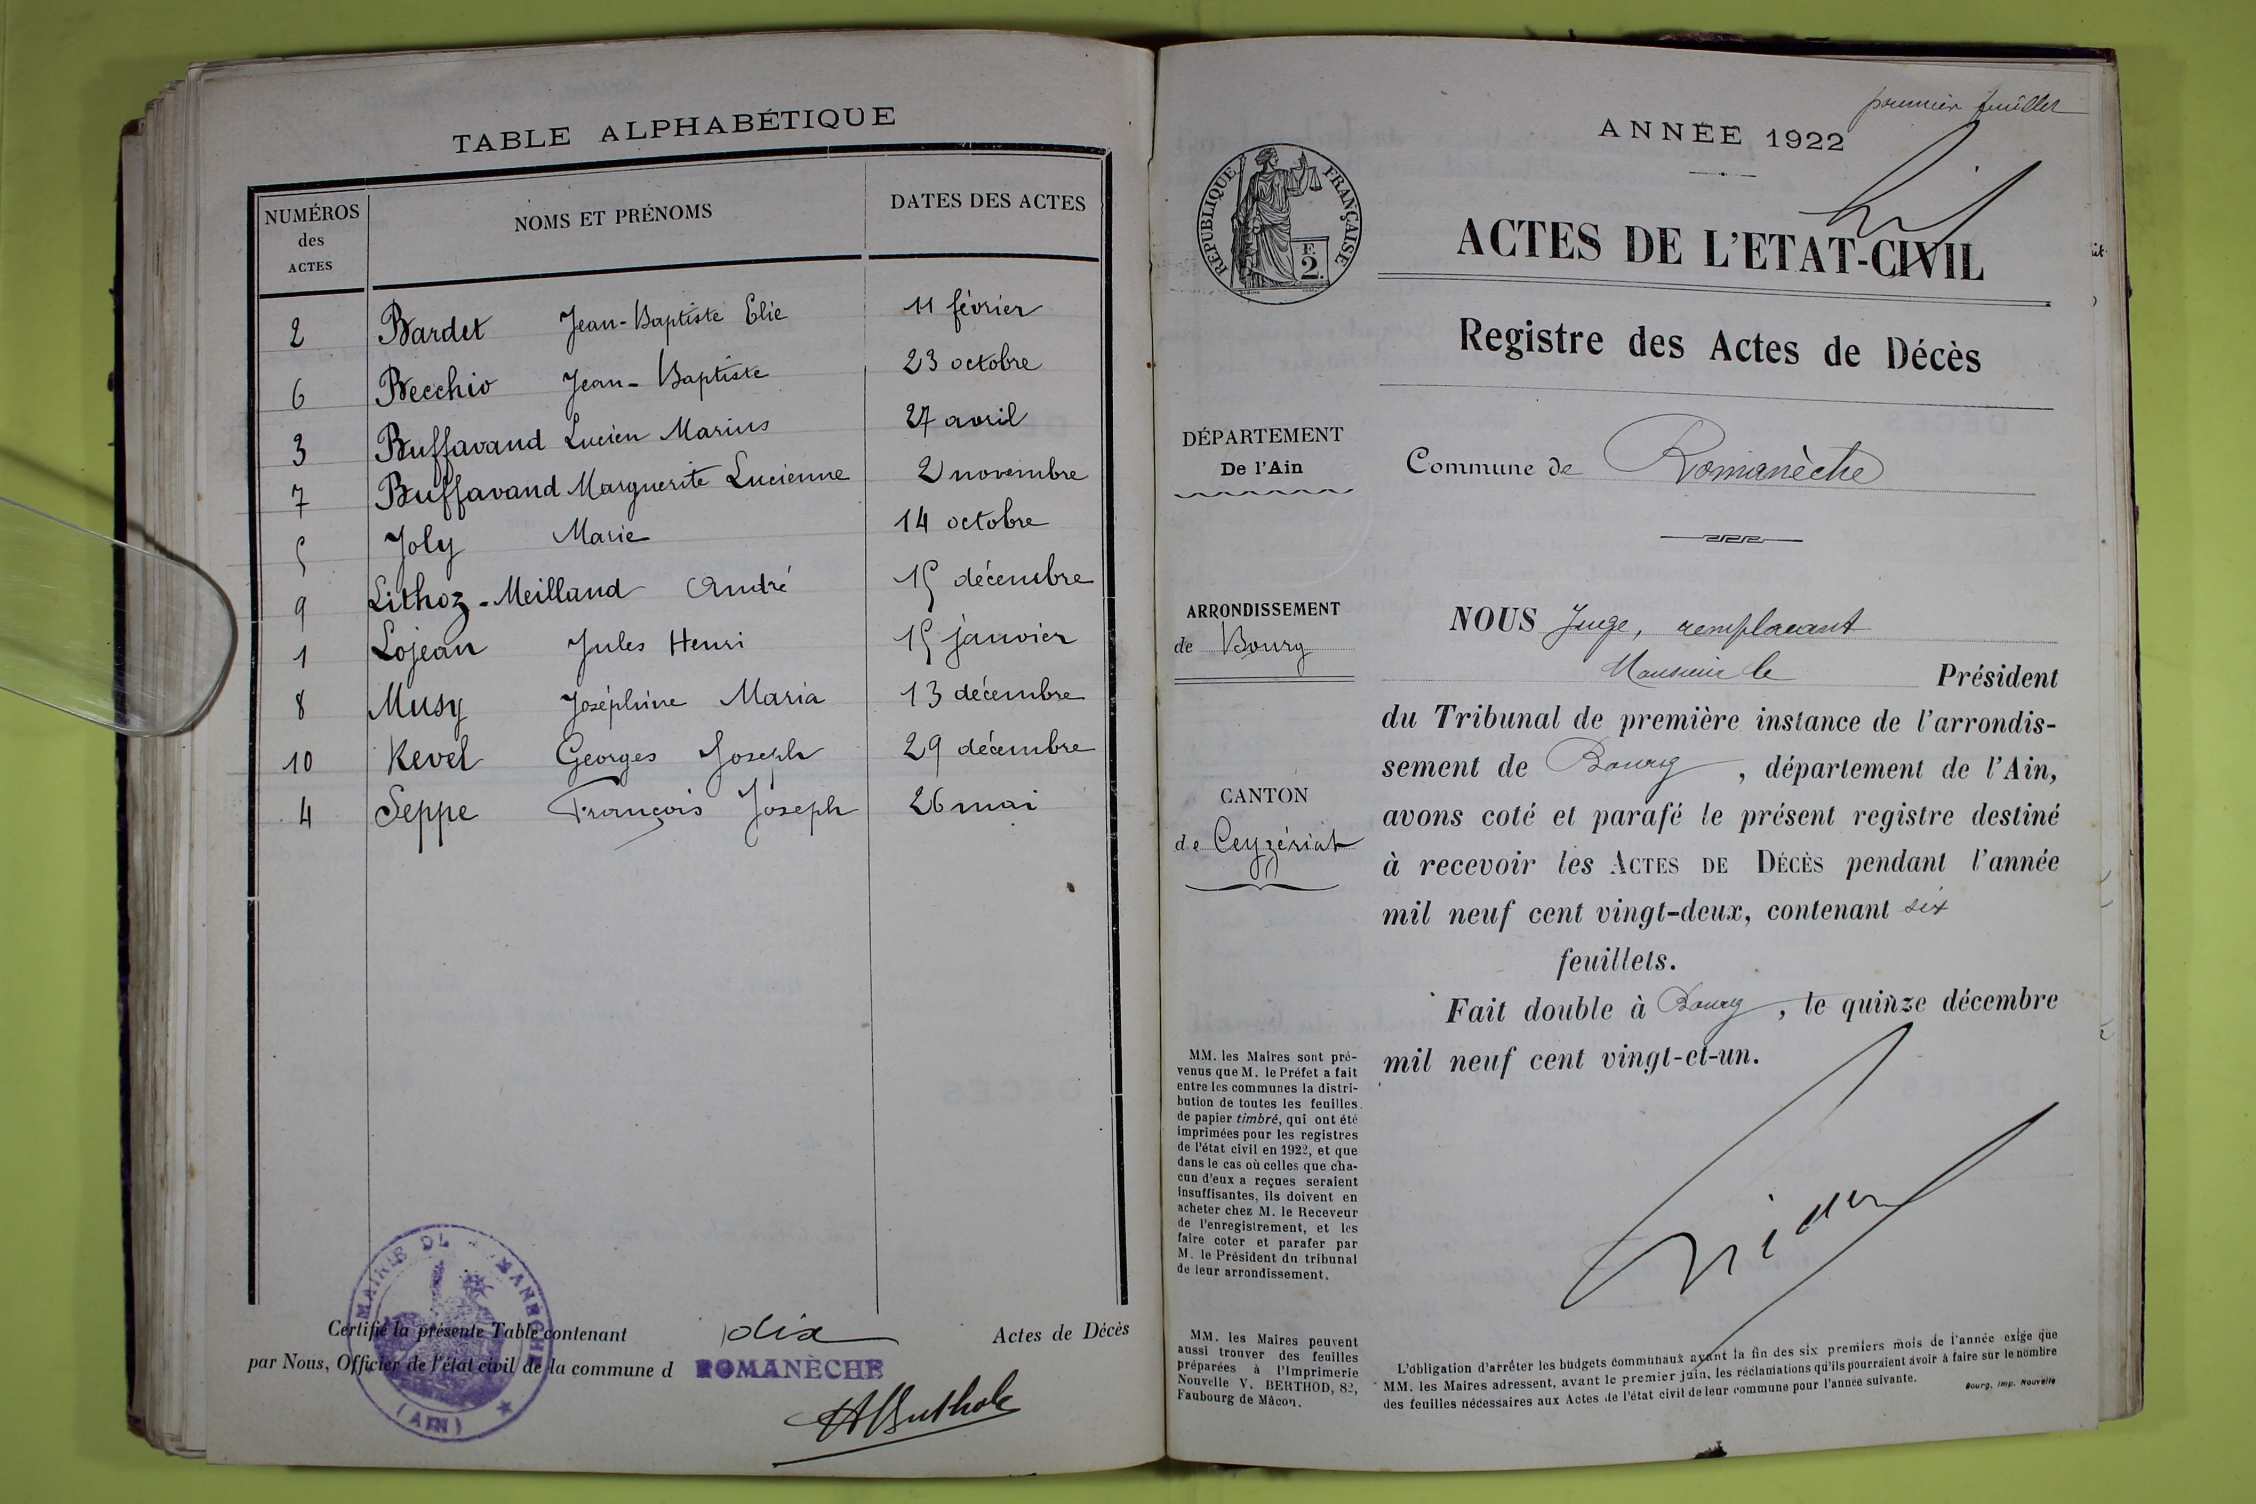 TABLE ALPHABÉTIQUE
NUMÉROS des ACTES NOMS ET PRÉNOMS DATES DES ACTES
2 Bardet Jean-Baptiste Elie 11 février
6 Becchio Jean-Baptiste 23 octobre
3 Buffavand Lucien Marius 27 avril
7 Buffavand Marguerite Lucienne 2 novembre
5 Joly Marie 14 octobre
9 Lithoz-Meilland André 15 décembre
1 Lojean Jules Henri 15 janvier
8 Musy Joséphine Maria 13 décembre
10 Revel Georges Joseph 29 décembre
4 Seppe François Joseph 26 mai
Certifié la présente Table contenant dix Actes de Décès
par Nous, Officier de l'état civil de la commune d ROMANÈCHE
MAIRIE DE ROMANÈCHE
(AIN)
premier feuillet
ANNÉE 1922
RÉPUBLIQUE FRANÇAISE
F.
2.
ACTES DE L'ETAT-CIVIL
Registre des Actes de Décès
DÉPARTEMENT
De l'Ain
Commune de Romanèche
ARRONDISSEMENT
de Bourg
CANTON
de Ceyzériat
NOUS Juge, remplacant
Monsieur le Président
du Tribunal de première instance de l'arrondis-
sement de Bourg, département de l'Ain,
avons coté et parafé le présent registre destiné
à recevoir les ACTES DE DÉCÈS pendant l'année
mil neuf cent vingt-deux, contenant six
feuillets.
Fait double à Bourg, le quinze décembre
mil neuf cent vingt-et-un.
MM. les Maires sont pré-
venus que M. le Préfet a fait
entre les communes la distri-
bution de toutes les feuilles
de papier timbré, qui ont été
imprimées pour les registres
de l'état civil en 1922, et que
dans le cas où celles que cha-
cun d'eux a reçues seraient
insuffisantes, ils doivent en
acheter chez M. le Receveur
de l'enregistrement, et les
faire coter et parafer par
M. le Président du tribunal
de leur arrondissement.
MM. les Maires peuvent
aussi trouver des feuilles
préparées à l'Imprimerie
Nouvelle V. BERTHOD, 82,
Faubourg de Mâcon.
L'obligation d'arrêter les budgets communaux avant la fin des six premiers mois de l'année exige que
MM. les Maires adressent, avant le premier juin, les réclamations qu'ils pourraient avoir à faire sur le nombre
des feuilles nécessaires aux Actes de l'état civil de leur commune pour l'année suivante.
Bourg, Imp. Nouvelle